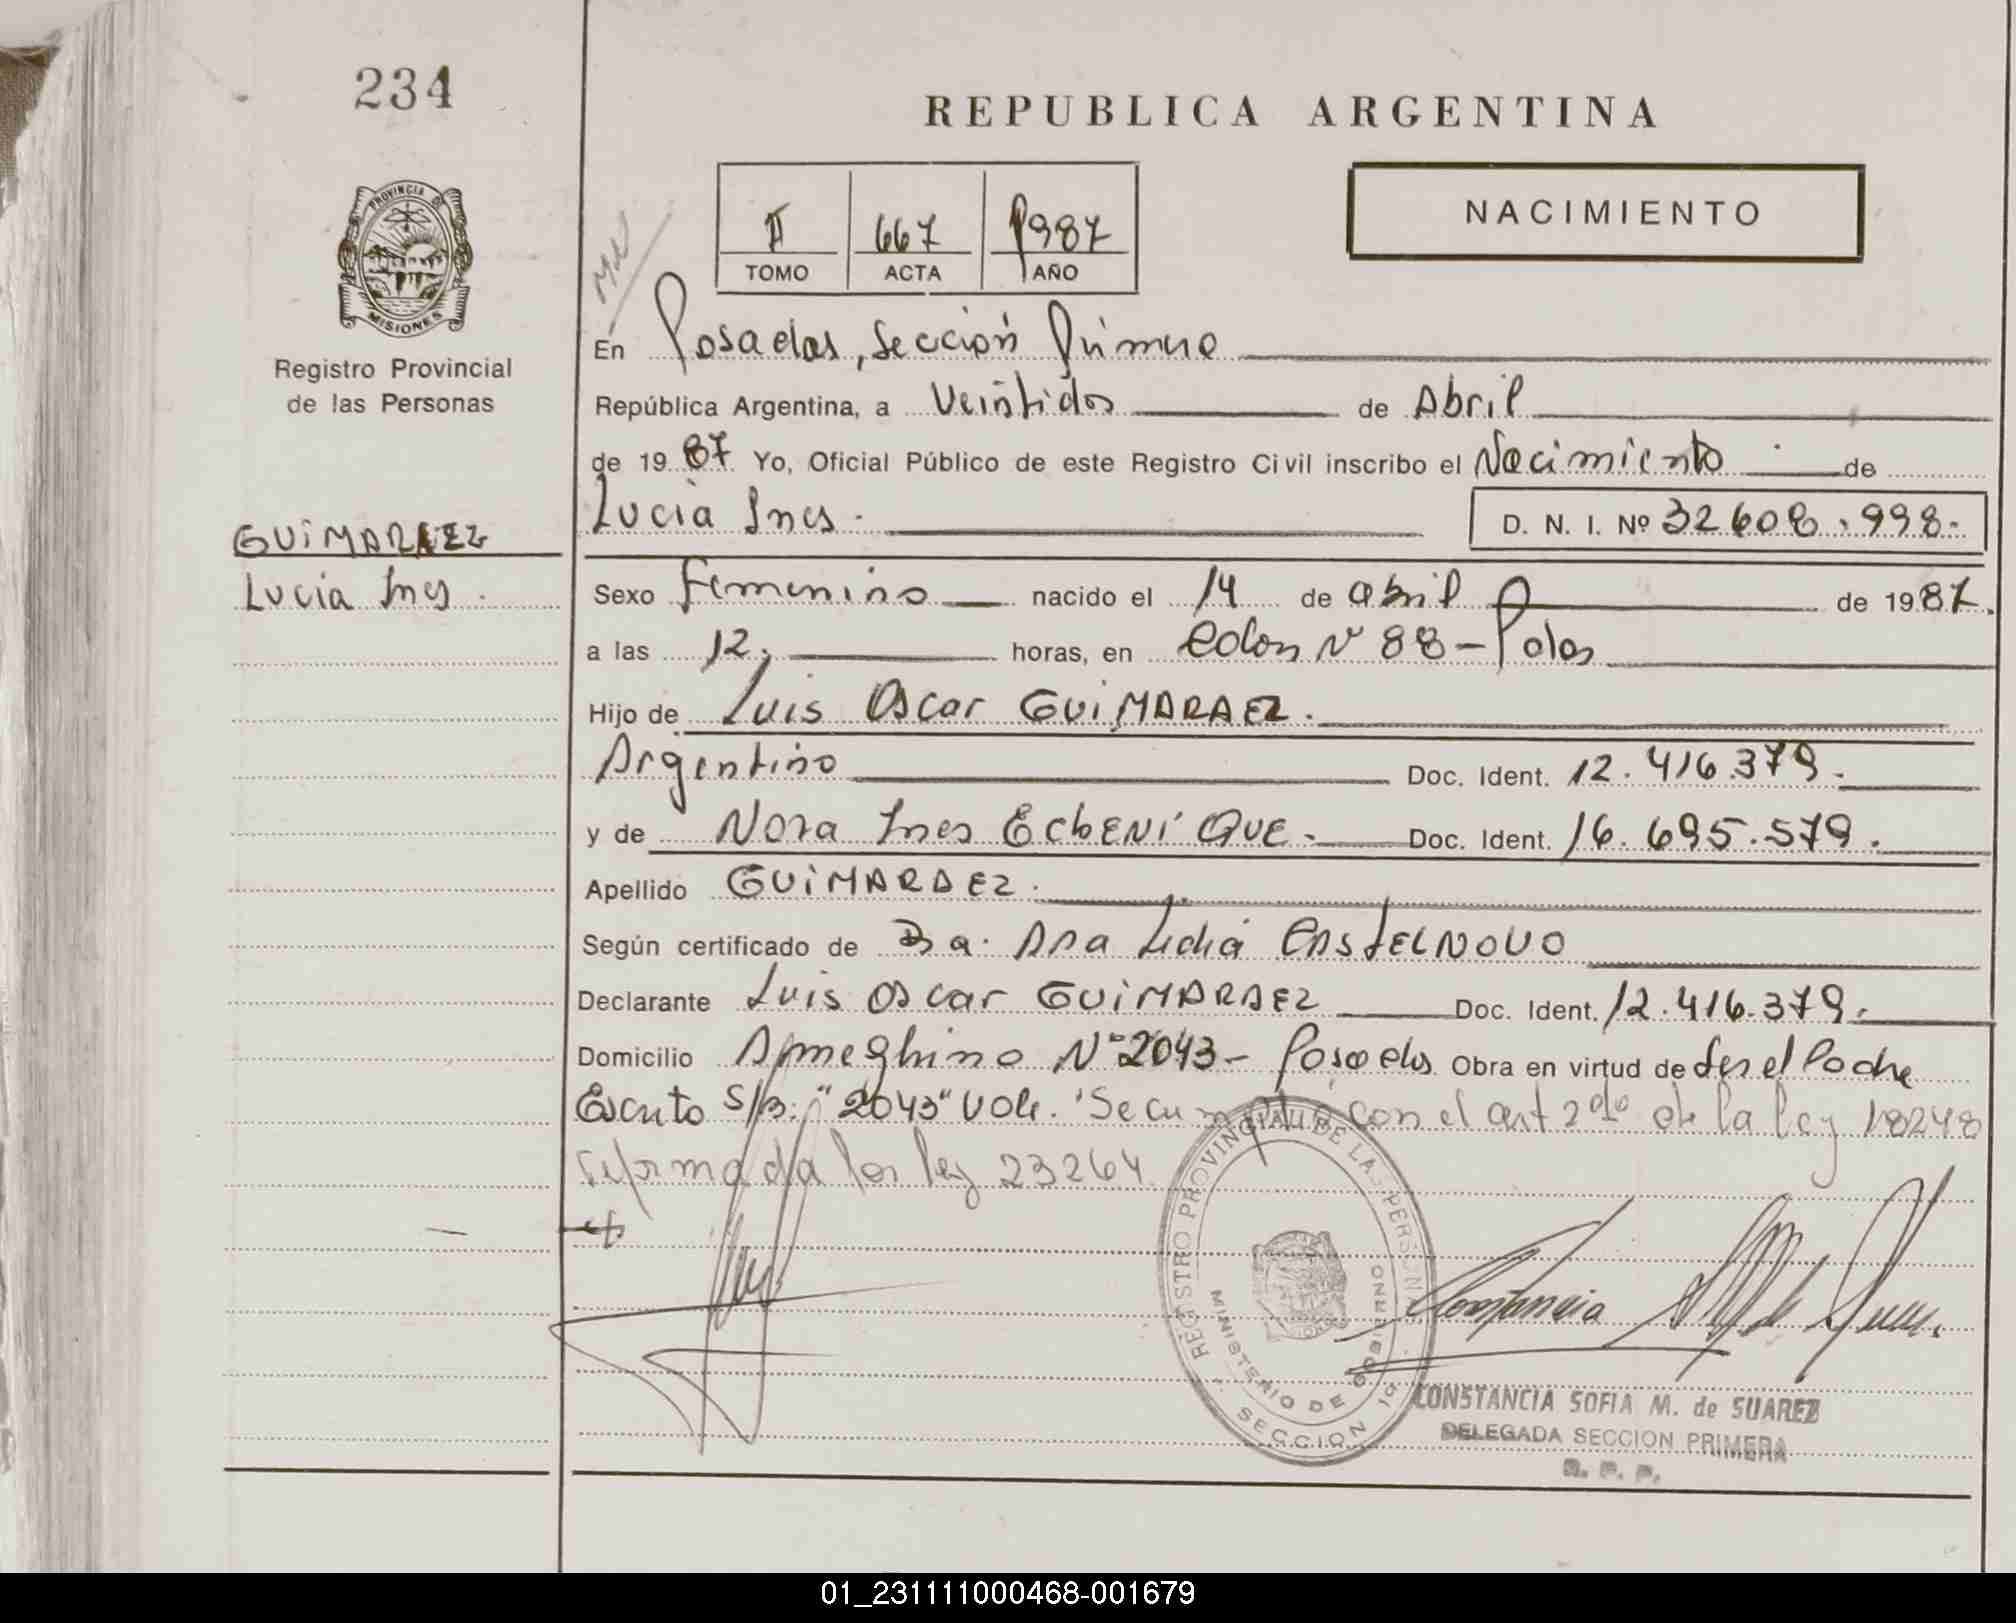 234
REPUBLICA ARGENTINA
NACIMIENTO
II 667 1987
TOMO ACTA AÑO
PROVINCIA DE
MISIONES
Registro Provincial
de las Personas
En Posadas, Sección Primera
República Argentina, a Veintidos de Abril
de 1987 Yo, Oficial Público de este Registro Civil inscribo el Nacimiento de
Lucia Ines.
D. N. I. Nº 32608.998.
GUiMARAEZ
Lucia Ines.
Sexo Femenino nacido el 14 de abril de 1987.
a las 12. horas, en Colon Nº 88 - Pdas
Hijo de Luis Oscar GUiMARAEZ.
Argentino Doc. Ident. 12.416.379.
y de Nora Ines EchENiQUE. Doc. Ident. 16.695.579.
Apellido GUiMARAEZ.
Según certificado de Dra. Ana Lidia CASTELNOVO
Declarante Luis Oscar GUiMARAEZ Doc. Ident. 12.416.379.
Domicilio Ameghino Nº 2043 - Posadas Obra en virtud de Ser el Padre
Escrito S/B: "2043" Vale. Se cumplió con el art 2do de la ley 18248
reformada por ley 23264
REGISTRO PROVINCIAL DE LAS PERSONAS
MINISTERIO DE GOBIERNO
SECCION 1a
Constancia
CONSTANCIA SOFIA M. de SUAREZ
DELEGADA SECCION PRIMERA
R. P. P.
01_231111000468-001679